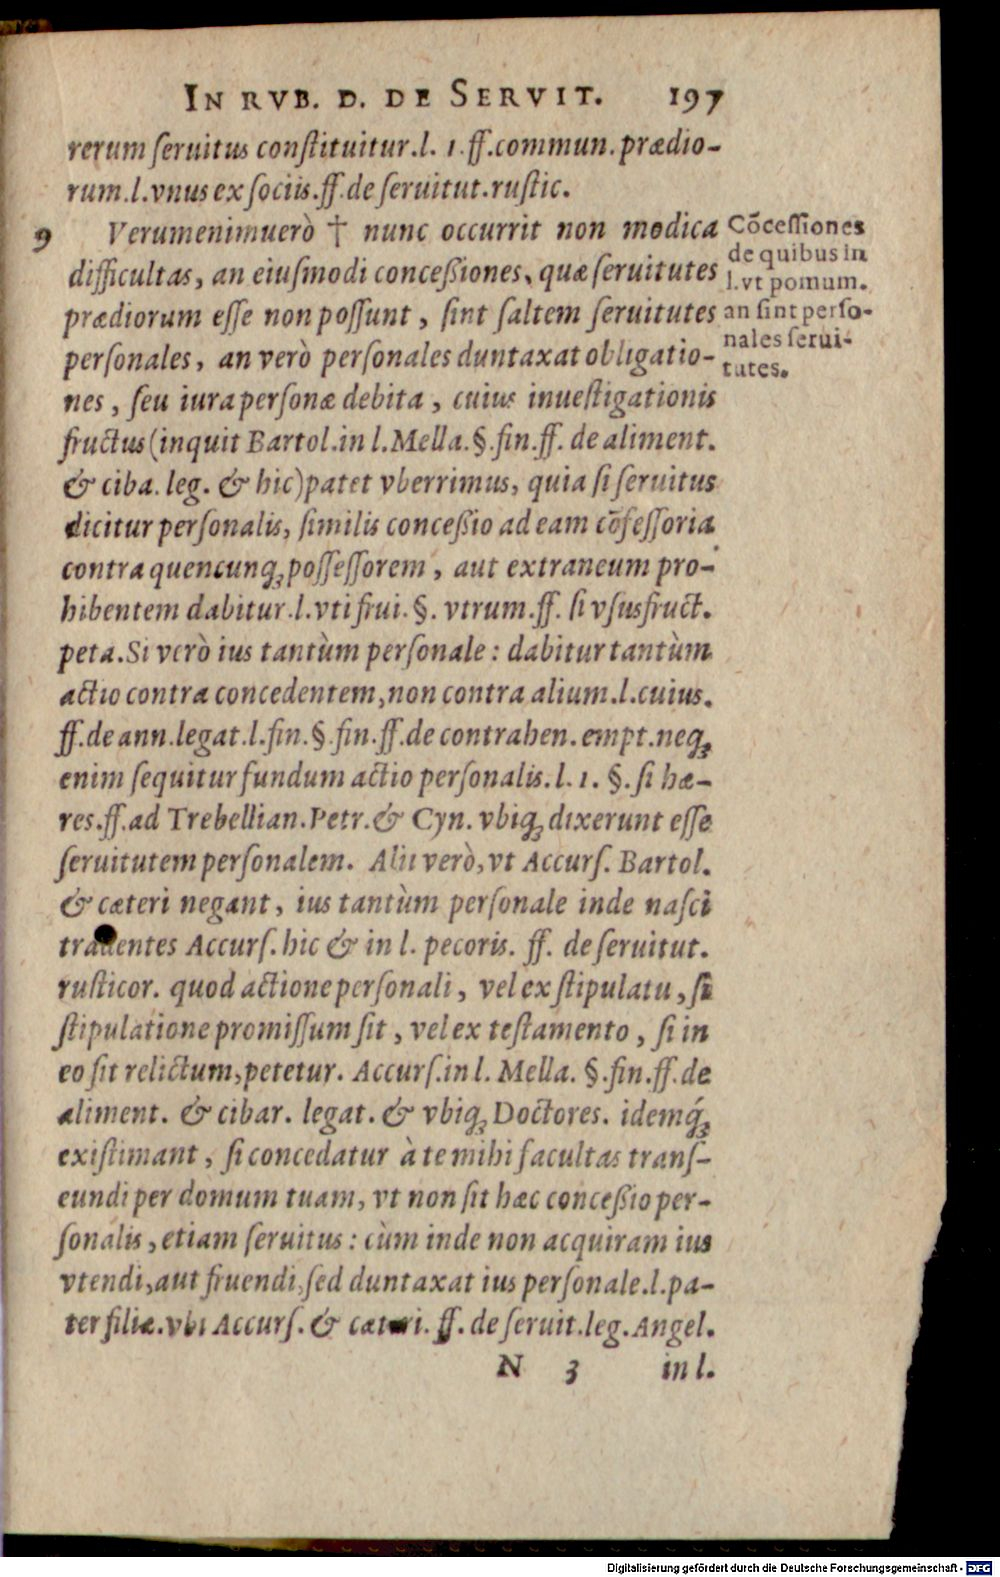 IN RVB. D. DE SERVIT. 197
rerum ſeruitus conſtituitur.l. 1.ff.commun.prædio-
rum.l.vnus ex ſociis.ff.de ſeruitut.ruſtic.
9 Verumenimuerò † nunc occurrit non modica
difficultas, an eiuſmodi conceßiones, quæ ſeruitutes
prædiorum eſſe non poſſunt, ſint ſaltem ſeruitutes
perſonales, an verò perſonales duntaxat obligatio-
nes, ſeu iura perſonæ debita, cuius inueſtigationis
fructus (inquit Bartol.in l.Mella.§.fin.ff. de aliment.
& ciba. leg. & hic) patet vberrimus, quia ſi ſeruitus
dicitur perſonalis, ſimilis conceßio ad eam cōfeſſoria
contra quencunq; poſſeſſorem, aut extraneum pro-
hibentem dabitur.l.vti frui.§. vtrum.ff. ſi vſusfruct.
peta.Si verò ius tantùm perſonale: dabitur tantùm
actio contra concedentem,non contra alium.l.cuius.
ff.de ann.legat.l.fin.§.fin.ff.de contrahen.empt.neq;
enim ſequitur fundum actio perſonalis.l. 1. §.ſi hæ-
res.ff.ad Trebellian.Petr.& Cyn. vbiq; dixerunt eſſe
ſeruitutem perſonalem. Alii verò,vt Accurſ. Bartol.
& cæteri negant, ius tantùm perſonale inde naſci
tradentes Accurſ. hic & in l. pecoris. ff. de ſeruitut.
ruſticor. quod actione perſonali, vel ex ſtipulatu, ſi
ſtipulatione promiſſum ſit, vel ex teſtamento, ſi in
eo ſit relictum,petetur. Accurſ.in l. Mella. §.fin.ff.de
aliment. & cibar. legat. & vbiq; Doctores. idemq́;
exiſtimant, ſi concedatur à te mihi facultas tranſ-
eundi per domum tuam, vt non ſit hæc conceßio per-
ſonalis, etiam ſeruitus: cùm inde non acquiram ius
vtendi,aut fruendi,ſed duntaxat ius perſonale.l.pa-
ter filiæ.vbi Accurſ. & cæteri. ff. de ſeruit.leg.Angel.
N 3 in l.
Cōceſſiones
de quibus in
l.vt pomum.
an ſint perſo-
nales ſerui-
tutes.
Digitalisierung gefördert durch die Deutsche Forschungsgemeinschaft - DFG